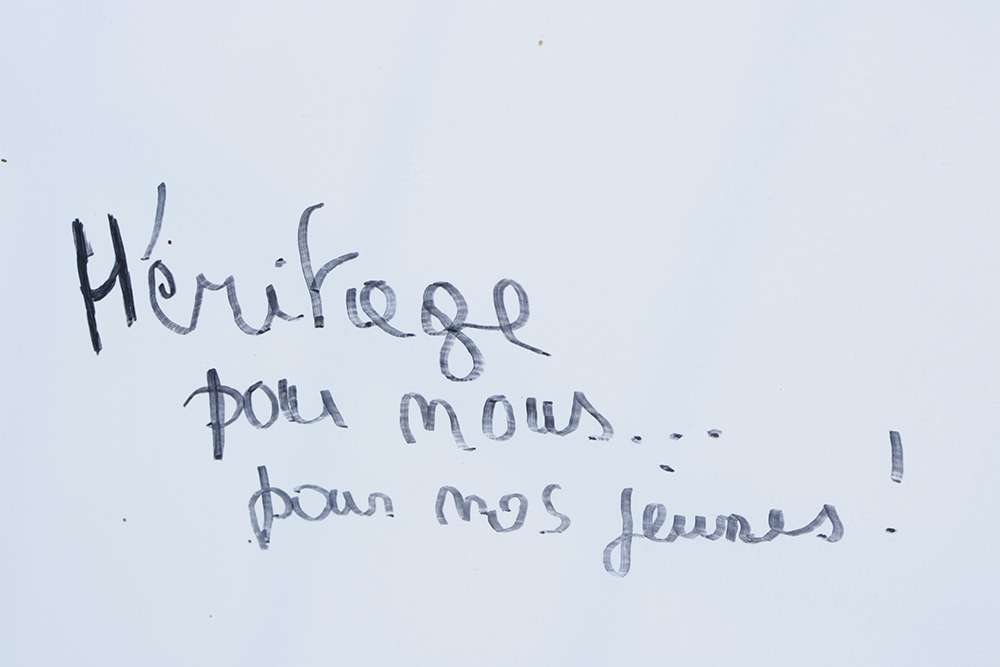 Héritage
pour nous...
pour nos jeunes !